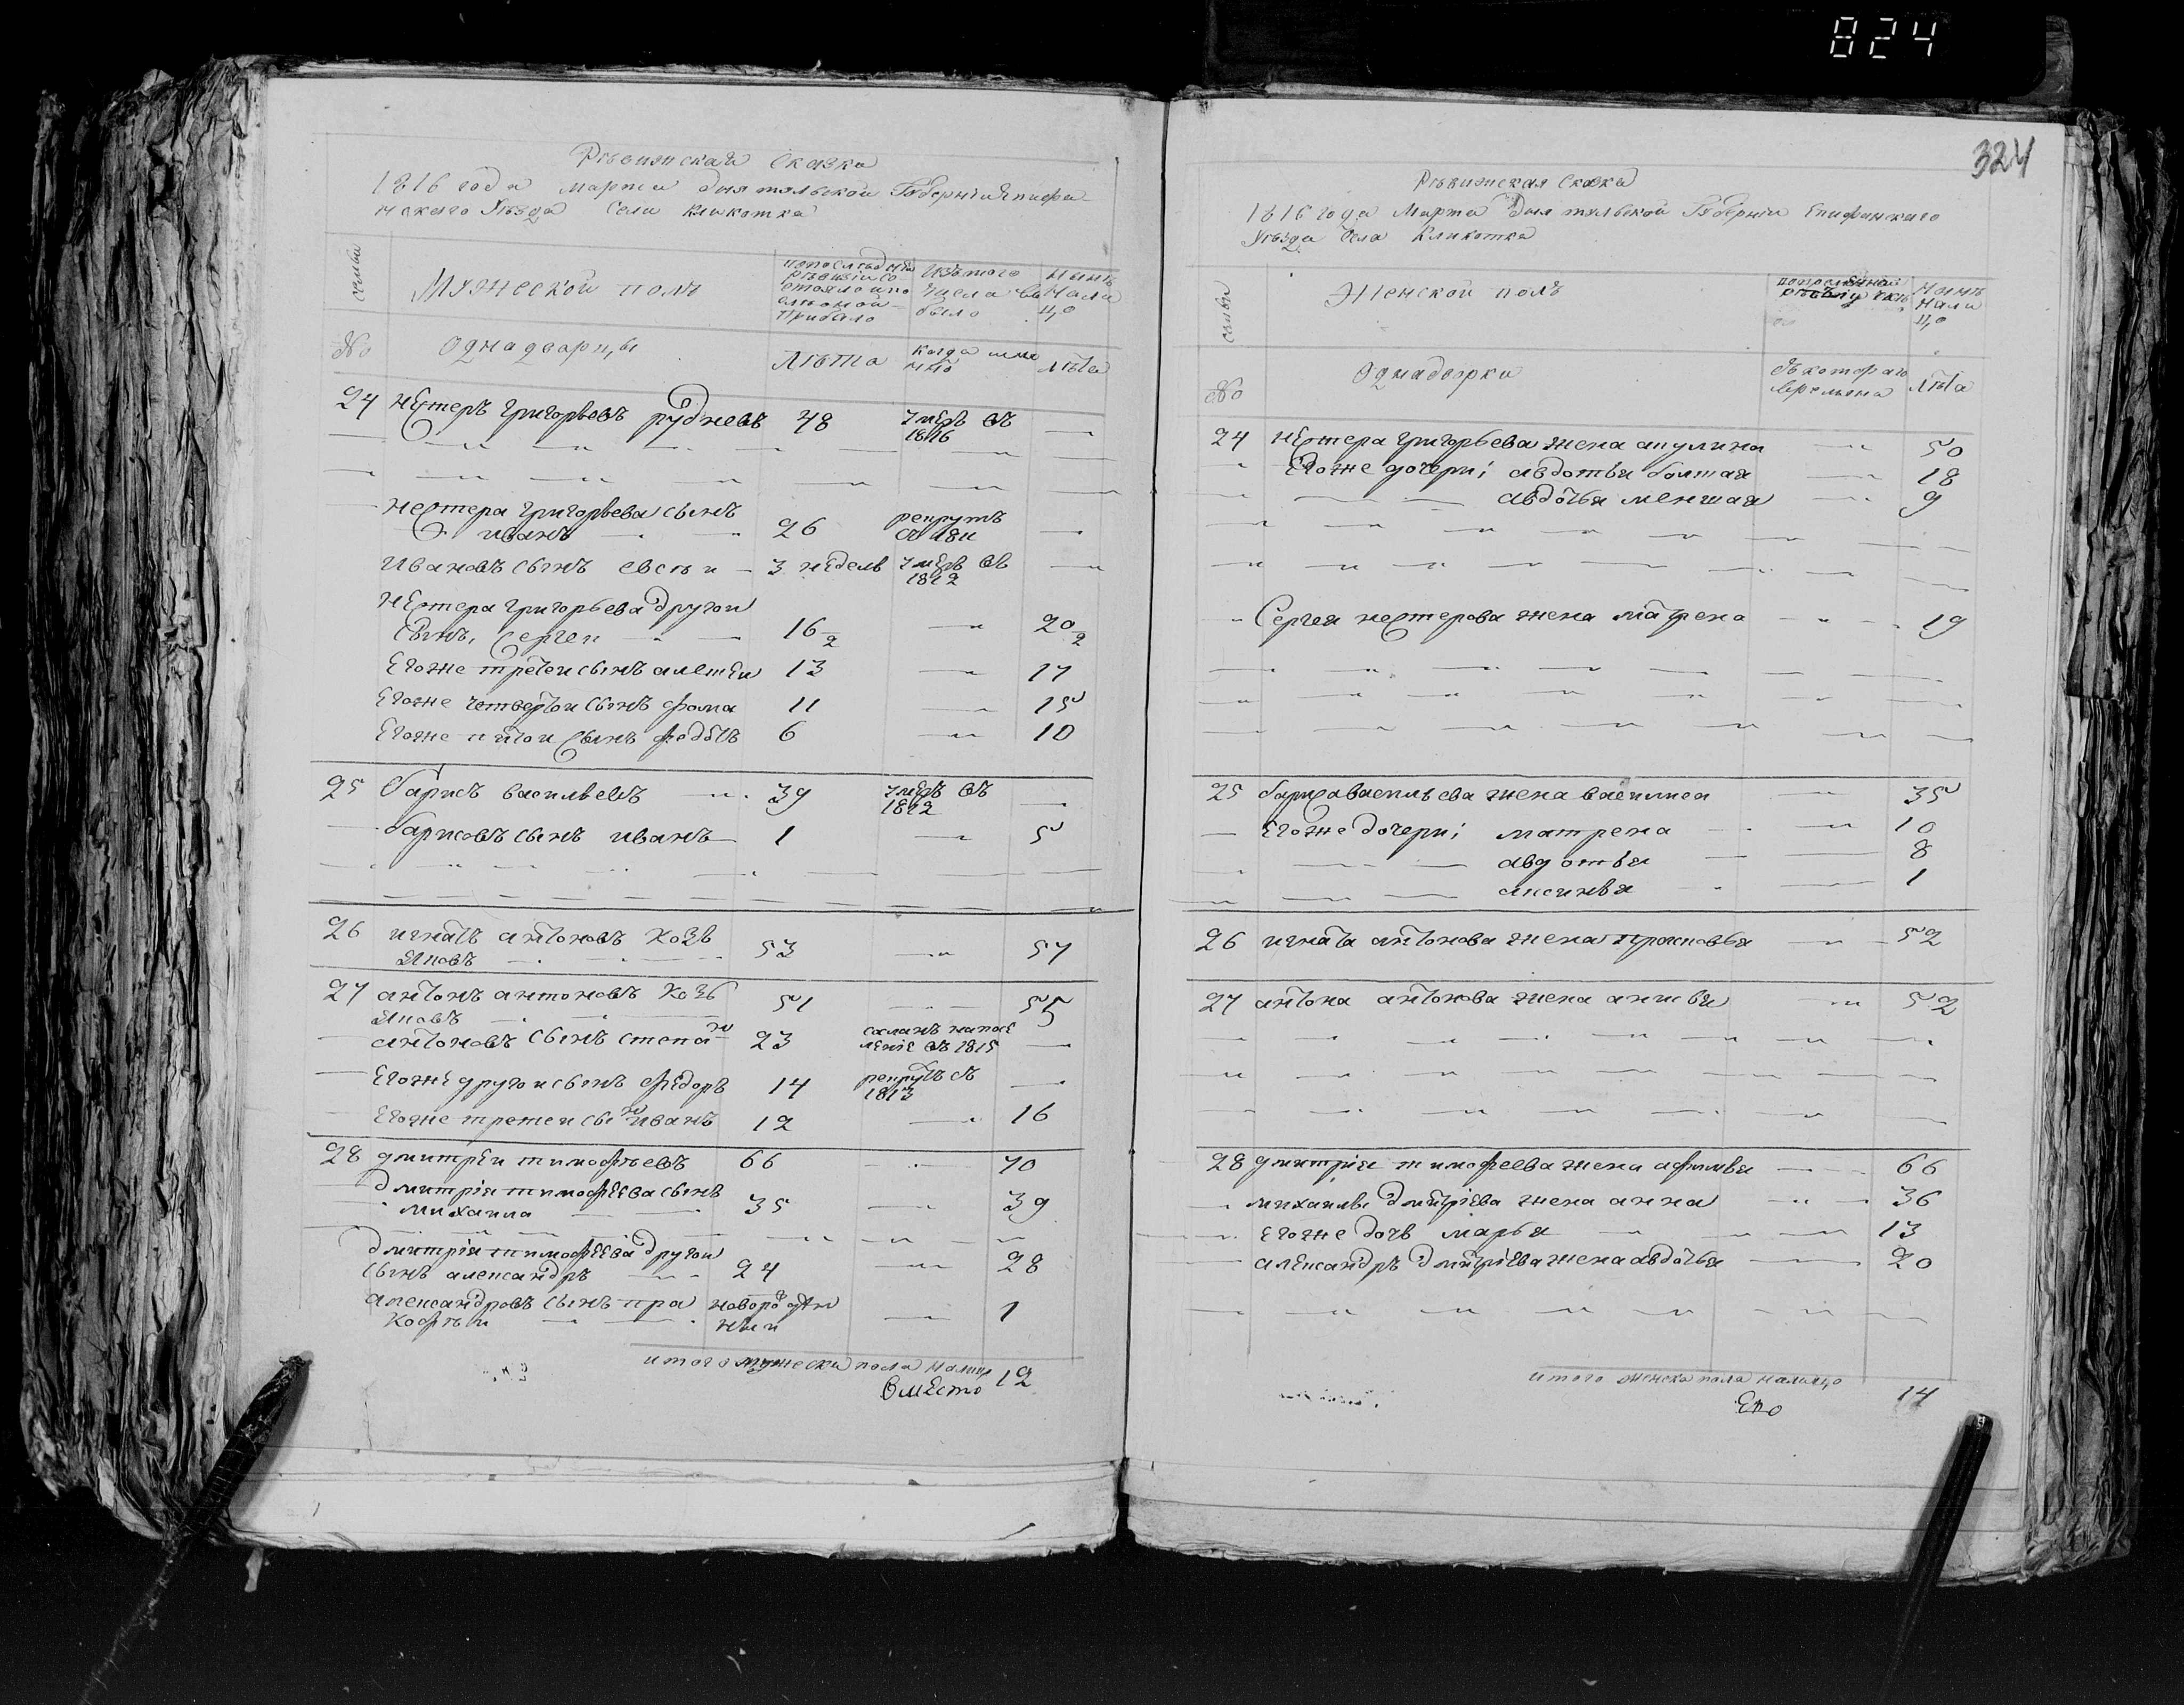 824
Ревижская Сказка
1816 года Марта дня тульской Губернии Епифа-
нскаго Уѣзда Села Кликотка
семьи
Мужеской полъ
попоследней ревизии состояло и после оной прибыло
Изътого числа выбыло
Нынѣ на лицо
№
Однадворцы
Лѣта
когда именно
лѣта
24 нестеръ григорьевъ рудневъ 48 умеръ въ 1816 —
нестера григорьева сынъ
иванъ 26 рекрутъ съ 1811 —
Ивановъ сынъ евсеи — 3 недель умеръ въ 1812 —
нестера григорьева другои
Сынъ, Сергеи 16/2 — 20/2
Егоже третеи сынъ алексеи 13 — 17
Егоже четвертои сынъ фома 11 — 15
Егоже пятои сынъ федотъ 6 — 10
25 барисъ васильевъ 39 умеръ въ 1812 —
барисовъ сынъ иванъ 1 — 5
26 игнатъ антоновъ козь
яковъ 53 — 57
27 антонъ антоновъ козь
яковъ 51 — 55
антоновъ сынъ степанъ 23 сасланъ напосе
ление въ 1815 —
Егоже другои сынъ федоръ 14 рекрутъ съ 1813 —
Егоже третеи сынъ иванъ 12 — 16
28 дмитреи тимофѣевъ 66 — 70
дмитрия тимофеева сынъ
михаила 35 — 39
дмитрия тимофеева другои
сынъ александръ 24 — 28
александровъ сынъ пра новорожден
кофѣи ныи — 1
итого мужеска пола налицо 12
вместо
324
Ревижская Сказка
1816 года Марта дня тульской Губернии Епифанскаго
Уѣзда Села Кликотка
семьи
Женской полъ
Нынѣ на лицо
№
Однадворки
съ котораго времяна
лѣта
24 нестера григорьева жена акулина — 50
Егоже дочери; авдотья болшая — 18
авдотья меншая — 9
Сергея нестерова жена матрена — 19
25 бариса васильева жена василиса — 35
Егоже дочери; матрена — 10
авдотья — 8
аксинья — 1
26 игната антонова жена прасковья — 52
27 антона антонова жена анисья — 52
28 дмитрия тимофеева жена афимья — 66
михаилы дмитриева жена анна — 36
Егоже дочь марья — 13
александръ дмитриева жена авдотья — 20
итого женска пола налицо 14